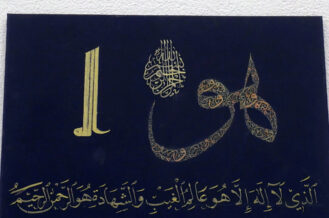 بسم الله الرحمن الرحيم
هو الله
الذي لا إله إلا هو عالم الغيب والشهادة هو الرحمن الرحيم